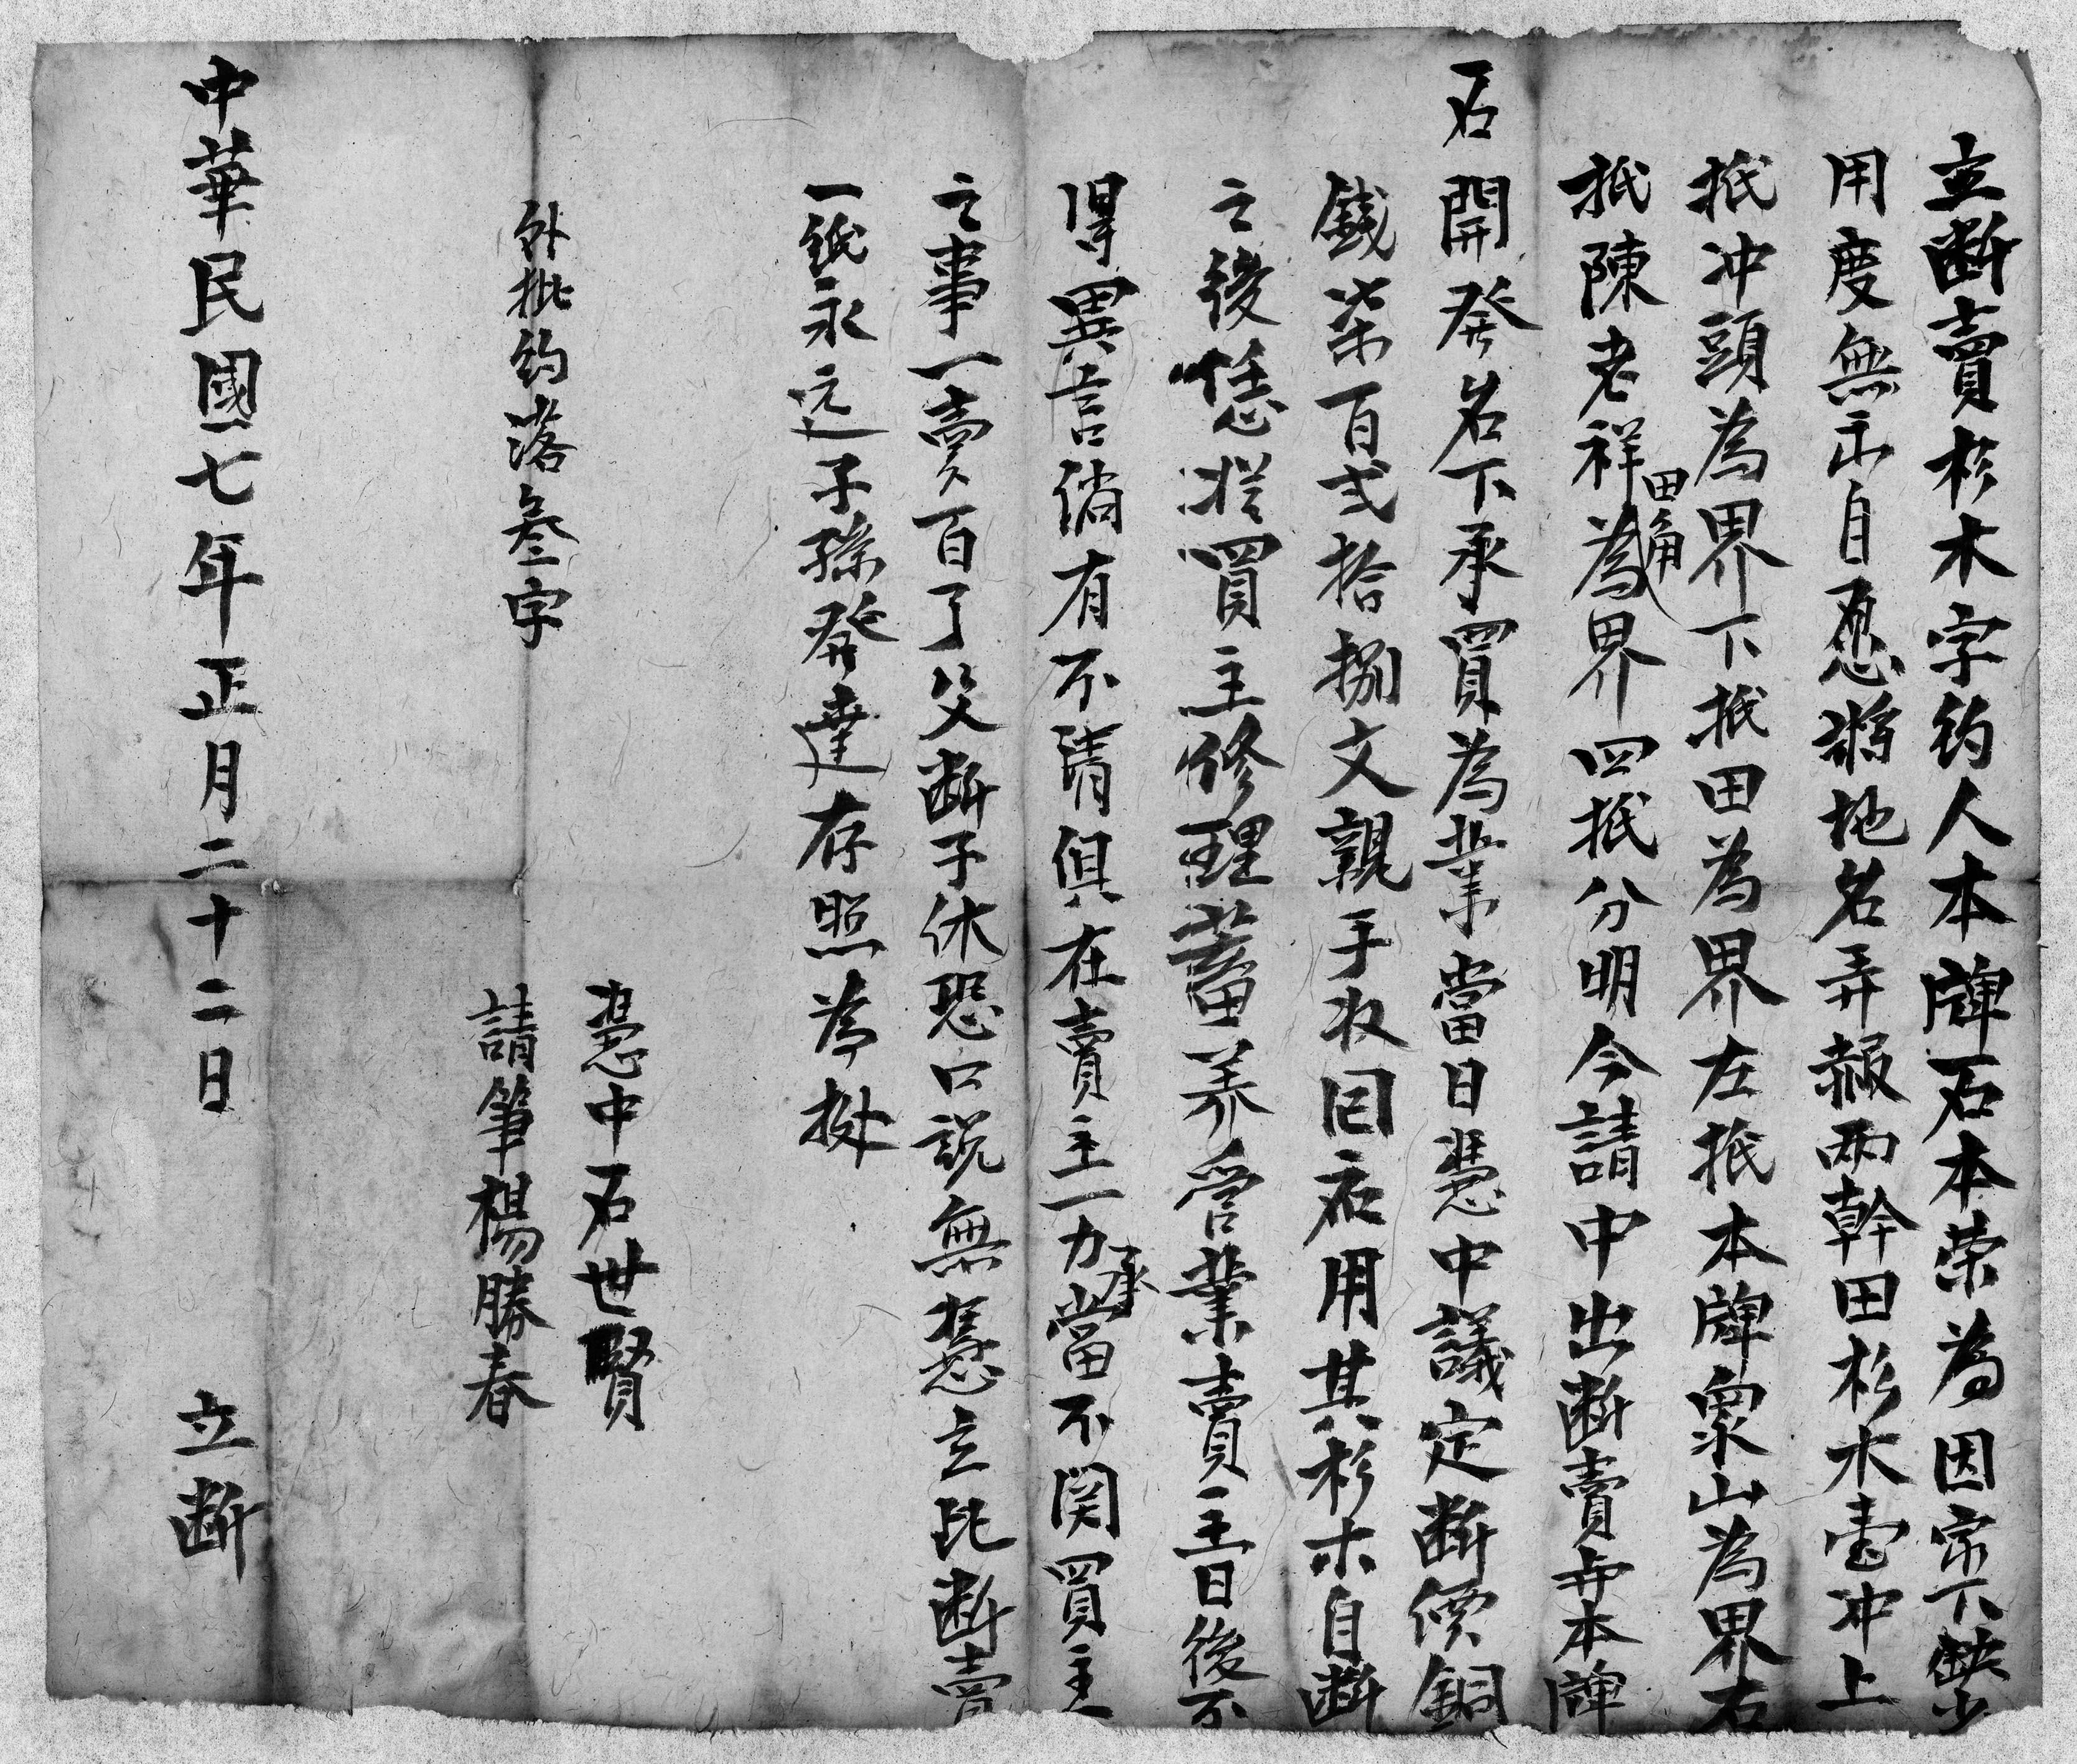 立斷賣杉木字約人本牌石本荣為因家下缺少
用度無出自愿將地名弄報兩幹田杉木壹冲上
抵冲頭為界下抵田為界左抵本牌衆山為界右
抵陳老祥田角為界四抵分明今請中出断賣與本牌
石開發名下承買為業當日憑中議定断價銅
錢柒百弍拾捌文親手收囘応用其杉木自断
之後恁從買主修理蓄养管業賣主日後不
得異言倘有不清俱在賣主一力承當不関買主
之事一賣百了父断子休恐口説無憑立此断賣
一紙永远子孫發達存照為拠
外批約落叁字
憑中石世賢
請筆楊勝春
中華民國一七年正月二十二日 立断